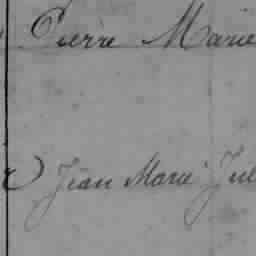 Pierre Marie
Jean Marie Jul